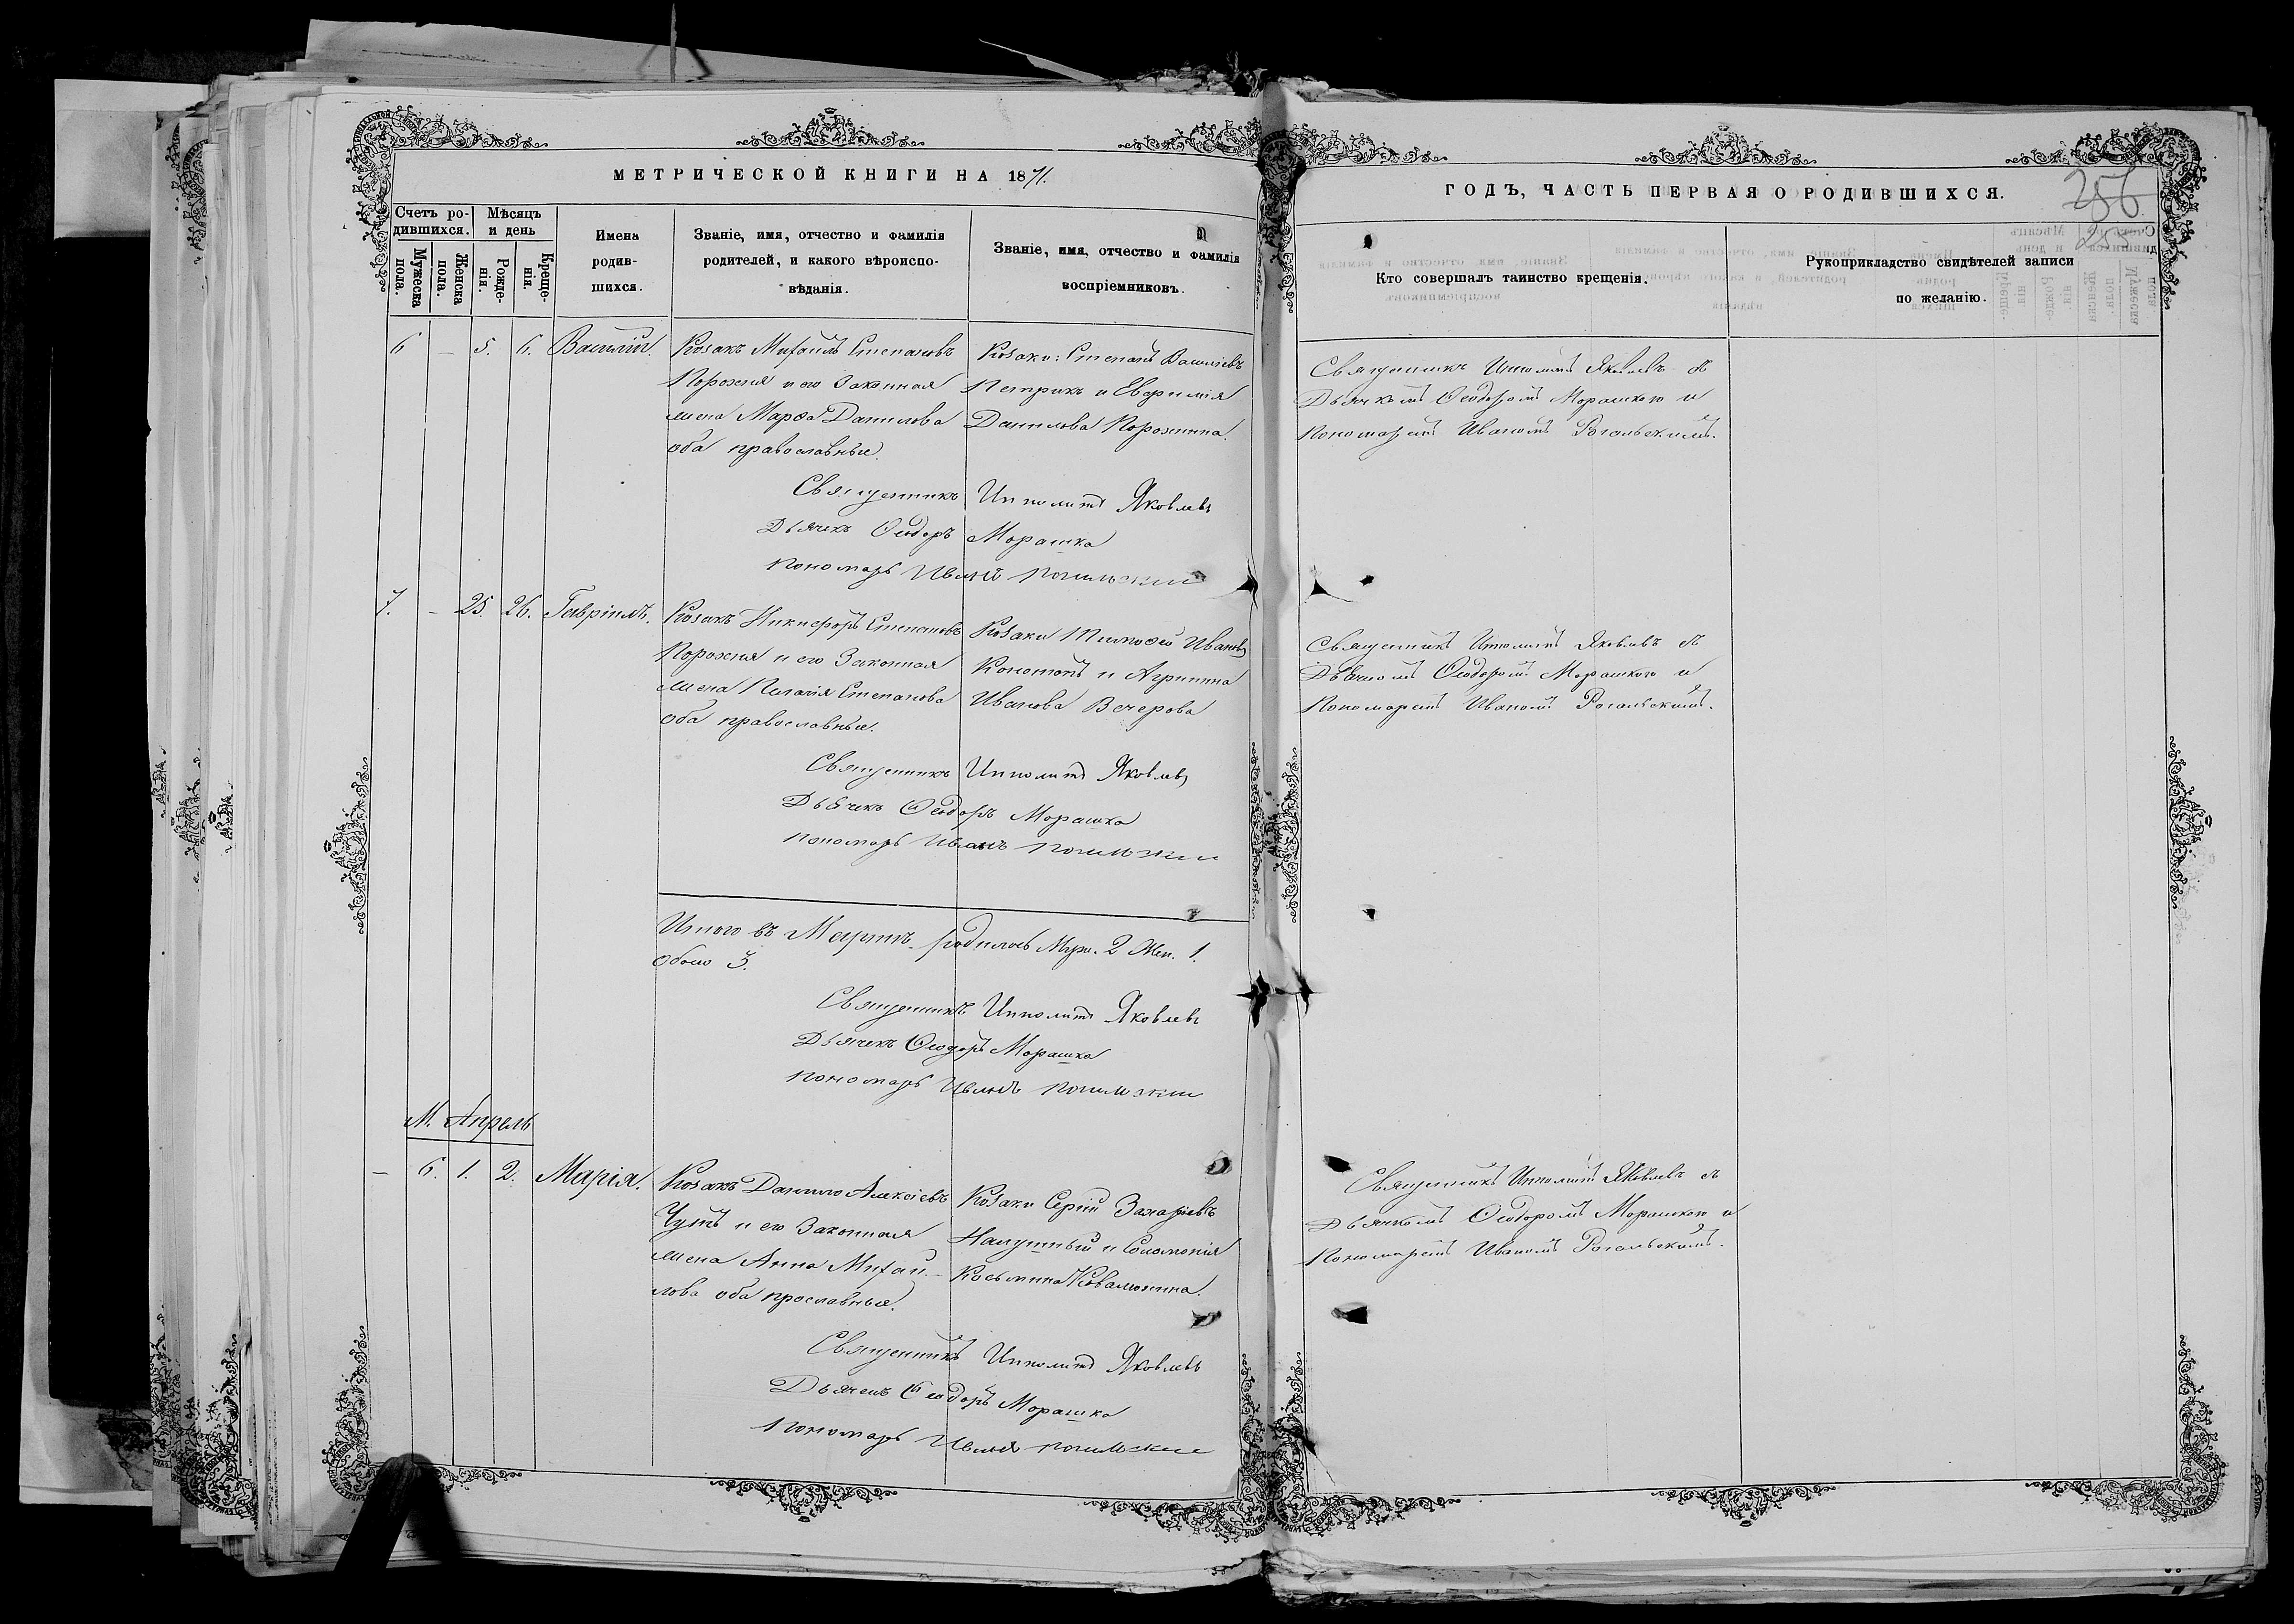 МЕТРИЧЕСКОЙ КНИГИ НА 1871.
Счетъ ро-
дившихся.
Мѣсяцъ
и день
Мужеска
пола.
Женска
пола.
Рожде-
нія.
Креще-
нія.
Имена
родив-
шихся.
Званіе, имя, отчество и фамилія
родителей, и какого вѣроиспо-
вѣданія.
Званіе, имя, отчество и фамилія
воспріемниковъ.
6 — 5. 6. Василій.
Козакъ Михаилъ Степановъ
Порохня и его законная
жена Марѳа Данилова
оба православные.
Козаки: Степанъ Василіевъ
Петрикъ и Евфимія
Данилова Порохнина.
Священникъ Ипполитъ Яковлевъ
Дьячекъ Ѳеодоръ Морашка
Пономарь Иванъ
7. — 25. 26. Гавріилъ.
Козакъ Никифоръ Степановъ
Порохня и его законная
жена Пелагія Степанова
оба православные.
Козаки Тимоѳей Ивановъ
Конотопъ и Агрипина
Иванова Вечерова
Священникъ Ипполитъ Яковлевъ
Дьячекъ Ѳеодоръ Морашка
Пономарь Иванъ
Итого въ Мартѣ родилось Муж. 2 Жен. 1.
Обоего 3.
Священникъ Ипполитъ Яковлевъ
Дьячекъ Ѳеодоръ Морашка
Пономарь Иванъ
М. Апрель
— 6. 1. 2. Марія.
Козакъ Данило Алексіевъ
и его законная
жена Анна Михаи-
лова оба прославные.
Козаки Сергій Захаріевъ
и Соломонія
Косьмина
Священникъ Ипполитъ Яковлевъ
Дьячекъ Ѳеодоръ Морашка
Пономарь Иванъ
ГОДЪ, ЧАСТЬ ПЕРВАЯ О РОДИВШИХСЯ.
256
Кто совершалъ таинство крещенія.
Рукоприкладство свидѣтелей записи
по желанію.
Священникъ Ипполитъ Яковлевъ съ
Дьячкомъ Ѳеодоромъ Морашкою и
Пономаремъ Иваномъ Рогальскимъ.
Священникъ Ипполитъ Яковлевъ съ
Дьячкомъ Ѳеодоромъ Морашкою и
Пономаремъ Иваномъ Рогальскимъ.
Священникъ Ипполитъ Яковлевъ съ
Дьячкомъ Ѳеодоромъ Морашкою и
Пономаремъ Иваномъ Рогальскимъ.